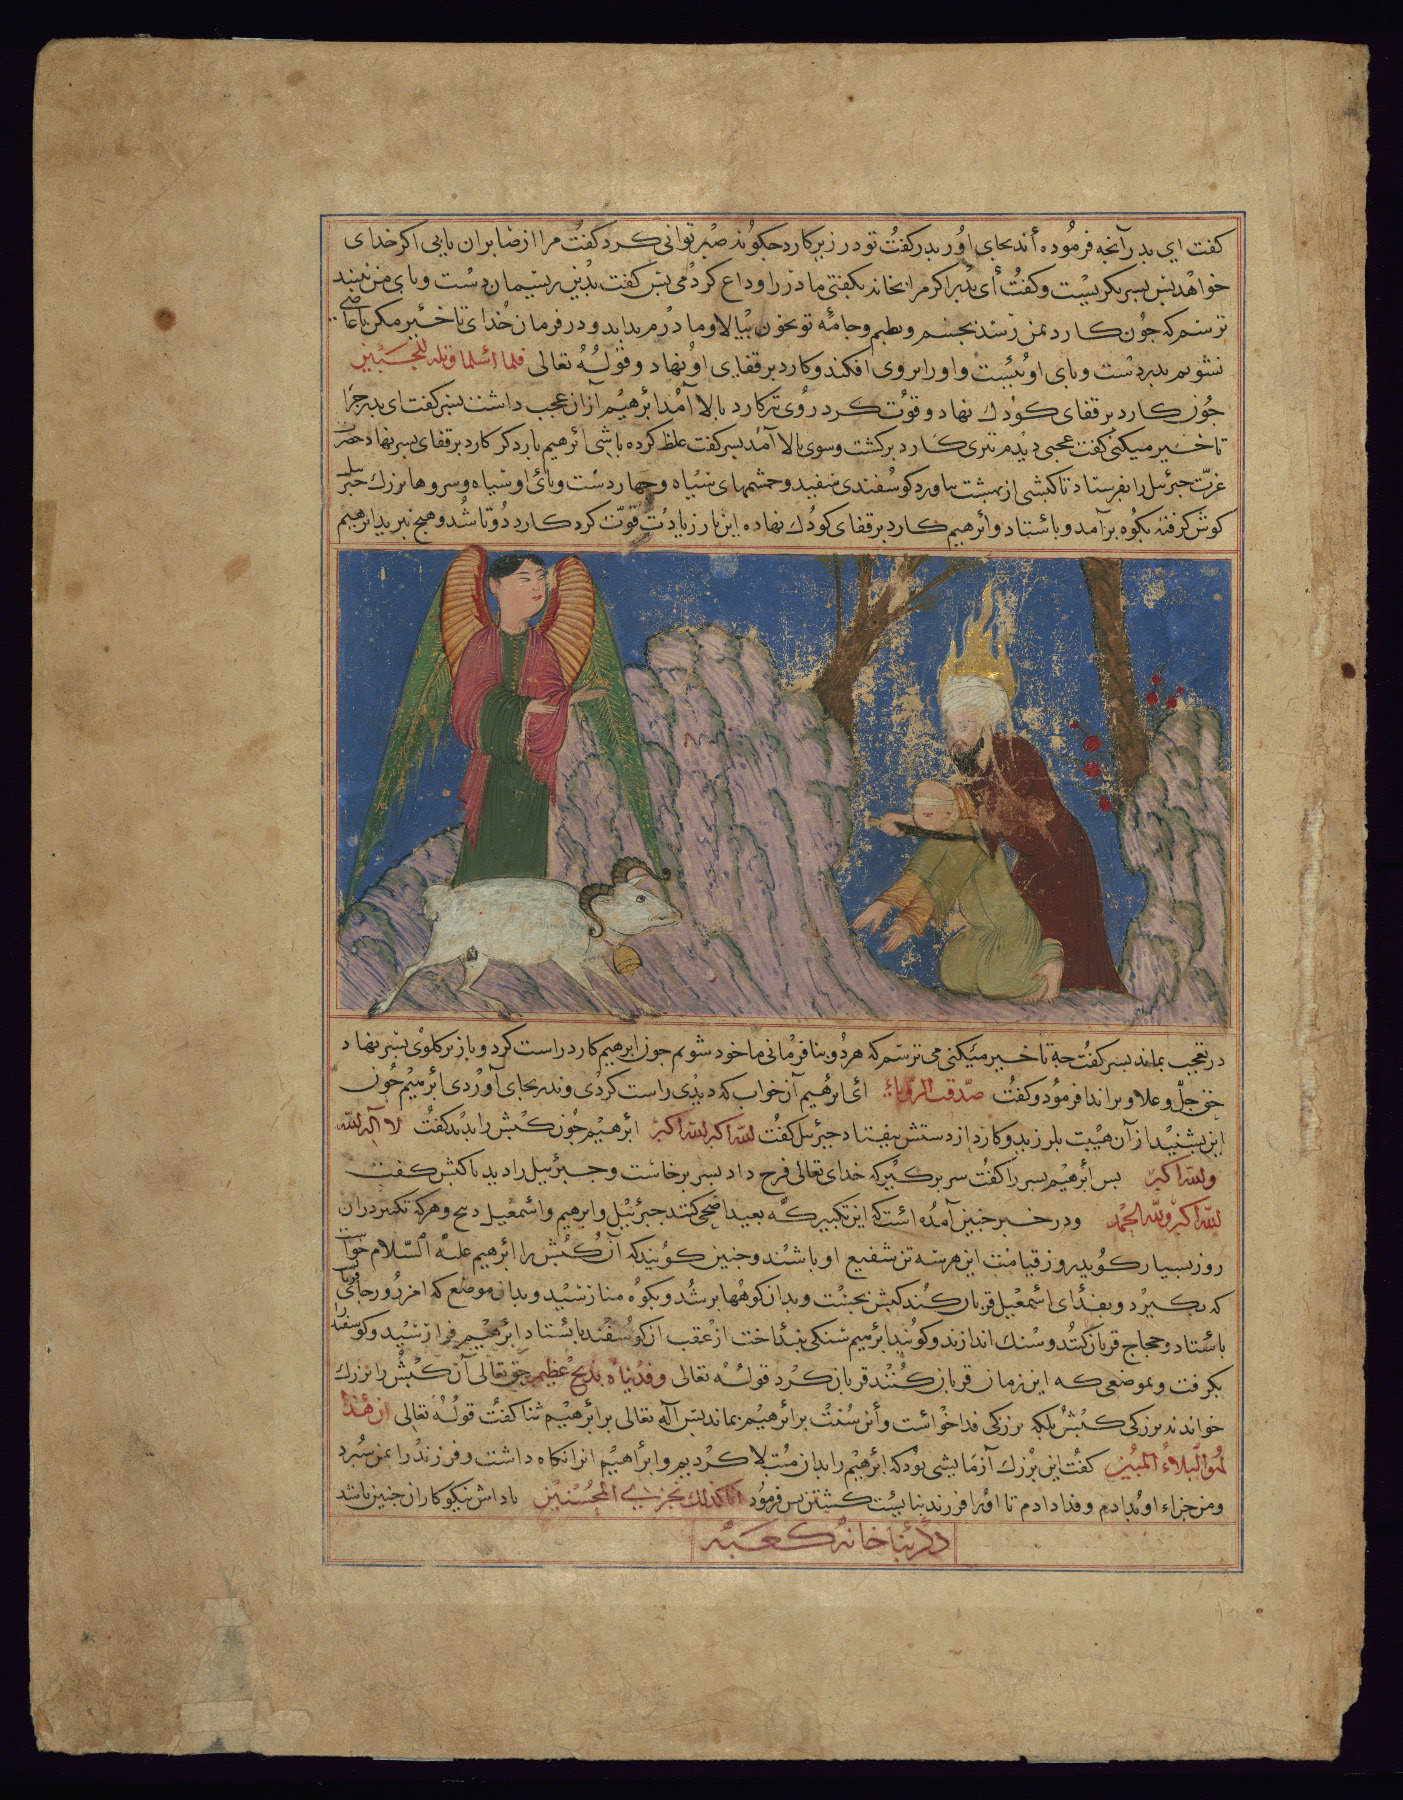 کفت ای بدر آنجه فرموده اند بجای اور بدر کفت تو در زیر کارد جکونه صبر توانی کرد کفت مرا از صابران یابی اکر خدای
خواهد بس بسر بکریست و کفت ای بدر اکر مرا بخانه بکفتی مادر را وداع کردمی بس کفت بدین ریسمان دست و بای من ببند
ترسم که جون کارد بمن رسد بجسم و بطبم و جامه تو بخون بیالاومادرم بداند و در فرمان خدای تاخیر مکن تا عاصی
نشویم بدر دست و بای او ببست و اورا بروی افکند و کارد بر قفای او نهاد و قوله تعالی فلما اسلما و تله للجبین
جون کارد بر قفای کودك نهاد و قوت کرد روی تیز کارد بالا آمد ابرهیم از ان عجب داشت بسر کفت ای بدر جرا
تاخیر میکنی کفت عجبی دیدم تیزی کارد برکشت و سوی بالا آمد بسر کفت غلط کرده باشی ابرهیم بار دکر کارد بر قفای بسر نهاد حضرت
عزت جبرئیل را بفرستاد تا کبشی از بهشت بیاورد کوسفندی سفید و جشمهای سیاه و جهار دست و بای او سیاه و سروها بزرك جبرئیل
کوش کرفته بکوه برآمد و باستاد و ابرهیم کارد بر قفای کودك نهاده این بار زیادت قوت کرد کارد دوتا شد و هیج نبرید ابرهیم
در تعجب بماند بسر کفت جه تاخیر میکنی می ترسم که هر دو بنافرمانی ماخوذ شویم جون ابرهیم کارد راست کرد و باز بر کلوی بسر نهاد
حق جل و علا ویرا ندا فرمود و کفت صدقت الرؤیا ای ابرهیم آن خواب که دیدی راست کردی و نذر بجای آوردی ابرهیم جون
این بشنید از آن هیبت بلرزید و کارد از دستش بیفتاد جبرئیل کفت الله اکبر الله اکبر ابرهیم جون کبش را بدید کفت لا اله الا الله
والله اکبر بس ابرهیم بسر را کفت سر برکیر که خدای تعالی فرج داد بسر برخاست و جبرئیل را دید با کبش کفت
الله اکبر ولله الحمد و در خبر جنین آمده است که این تکبیر که بعید اضحی کنند جبرئیل و ابرهیم و اسمعیل و هر که تکبیر در ان
روز بسیار کوید روز قیامت این هر سه تن شفیع او باشند و جنین کویند که آن کبش را ابرهیم علیه السلام خواست
که بکیرد و بفدای اسمعیل قربان کند کبش بجست و بدان کوهها بر شد و بکوه منا رسید و بدان موضع که امروز جای
باستاد و حجاج قربان کنند و سنك اندازند و کویند ابرهیم سنکی بینداخت از عقب آن کوسفند باستاد ابرهیم فراز رسید و کوسفند را
بکرفت و بموضعی که این زمان قربان کنند قربان کرد قوله تعالی و فدیناه بذبح عظیم حق تعالی آن کبش را بزرك
خواند نه بزرکی کبش بلکه بزرکی فدا خواست و این سنت بر ابرهیم بماند بس اله تعالی بر ابرهیم ثنا کفت قوله تعالی ان هذا
لهو البلاء المبین کفت این بزرك آزمایشی بود که ابرهیم را بدان مبتلا کردیم و ابراهیم انرا نکاه داشت و فرزند را بمن سبرد
و من جزاء او بدادم و فدا دادم تا اورا فرزند نبایست کشتن بس فرمود انا کذلك نجزی المحسنین باداش نیکوکاران جنین باشد
ذکر بنا خانه کعبه